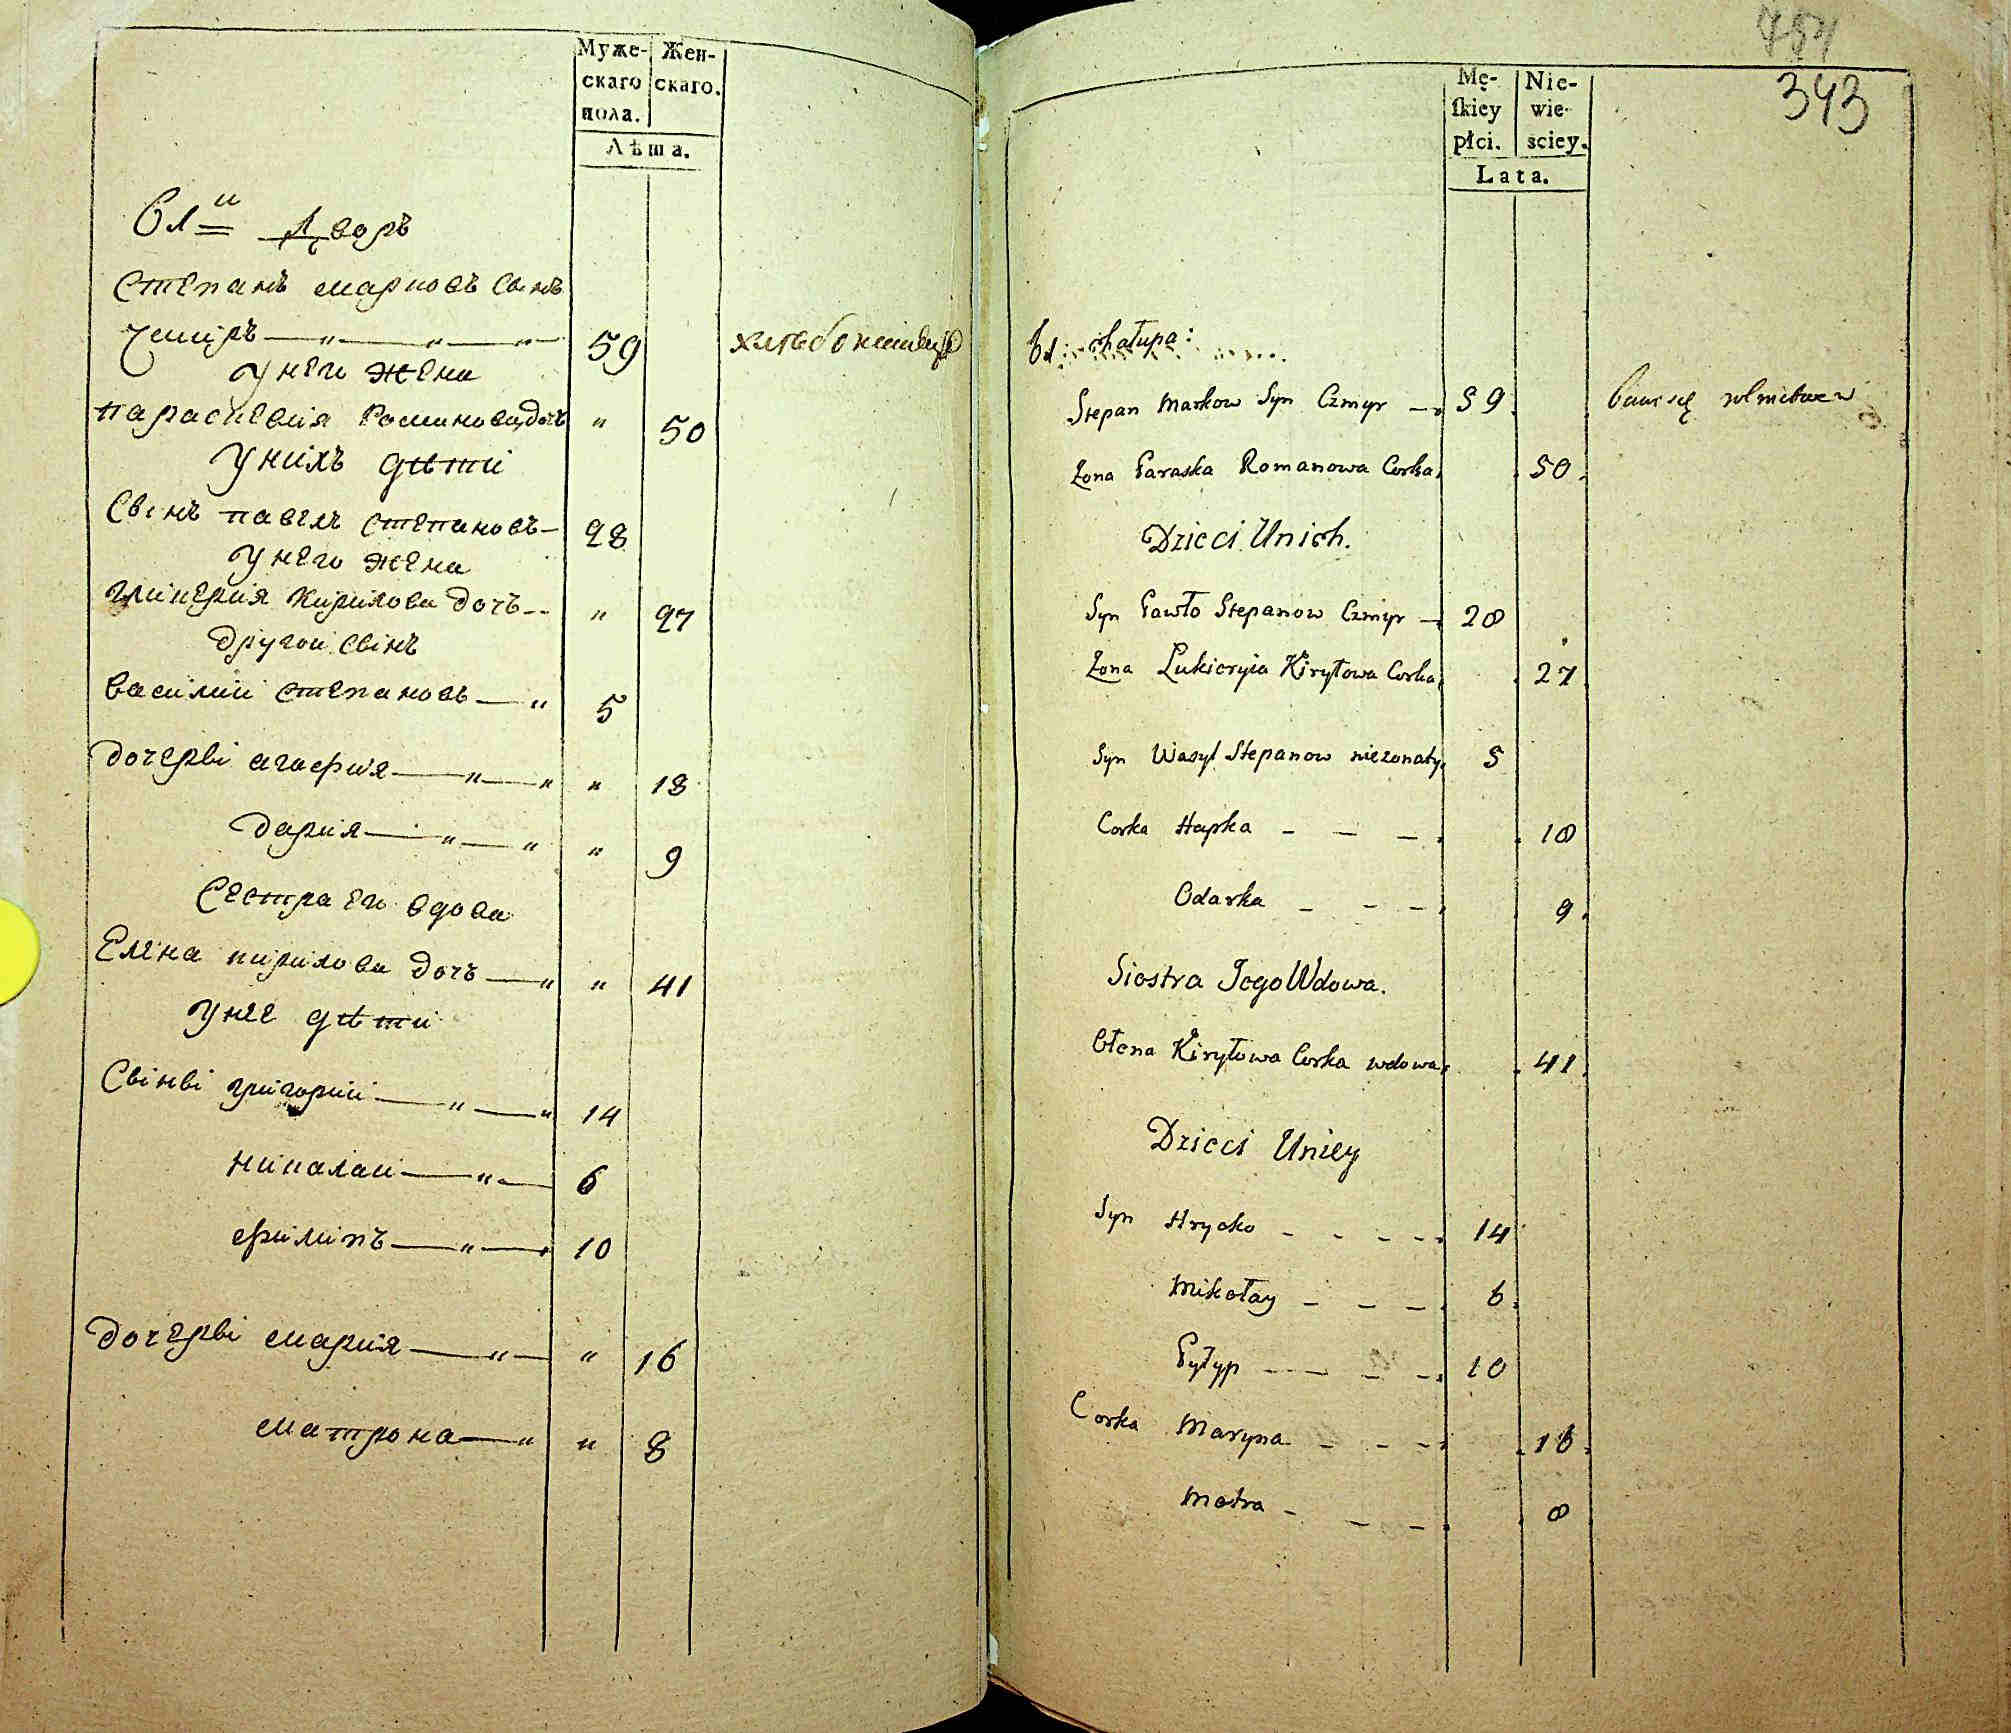 Муже-
скаго
пола.
Жен-
скаго.
Лѣта.
Дворъ
Степанъ марковъ Свінъ
Чміръ — „ — „ — „ 59 хлѣбопашецъ
у него жена
параскевия Романова дочь „ 50
у нихъ дѣти
Свінъ павелъ степановъ — 28
у него жена
гликерия кирилова дочъ — „ 27
другои свінъ
василий степановъ — „ 5
дочерві агафия — „ — „ „ 18
дария — „ — „ „ 9
Сестра его вдова
Елена кирилова дочъ — „ „ 41
у нее дѣти
Свінві григорий — „ — „ 14
николаи — „ — 6
филипъ — „ — 10
дочерві мария — „ — „ 16
матрона — „ „ 8
754
343
Mę-
ſkiey
płci.
Nie-
wie-
sciey.
Lata.
61: chałupa:
Stepan Markow Syn Czmyr — 59 bawi się rolnictwem
Żona Paraska Romanowa Corka 50
Dzieci Unich.
Syn Pawło Stepanow Czmyr — 28
Żona Łukieryia Kiryłowa Corka 27
Syn Wasyl Stepanow nieżonaty 5
Corka Hapka — — — 18
Odarka — — — 9
Siostra Jego Wdowa.
Ołena Kiryłowa Corka wdowa 41
Dzieci Uniey
Syn Hrycko — — — — 14
Mikołay — — — 6
Pyłyp — — — — 10
Corka Maryna — — — 16
Motra — — — 8